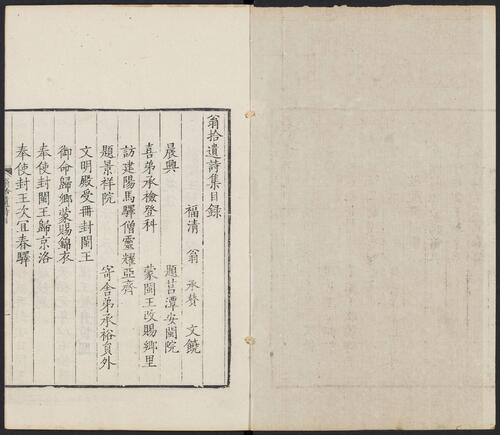 翁拾遺詩集目錄
福清 翁 承贊 文饒
晨興 題莒潭安閩院
喜弟承檢登科 蒙閩王改賜鄉里
訪建陽馬驛僧靈耀亞齊
題景祥院 寄舍弟承裕員外
文明殿受冊封閩王
御命歸鄉蒙賜錦衣
奉使封閩王歸京洛
奉使封王次宜春驛